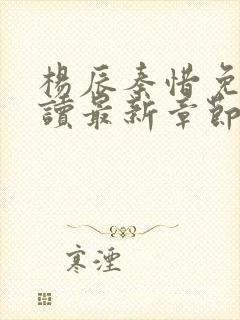 楊辰秦惜免
讀最新章節
寒湮